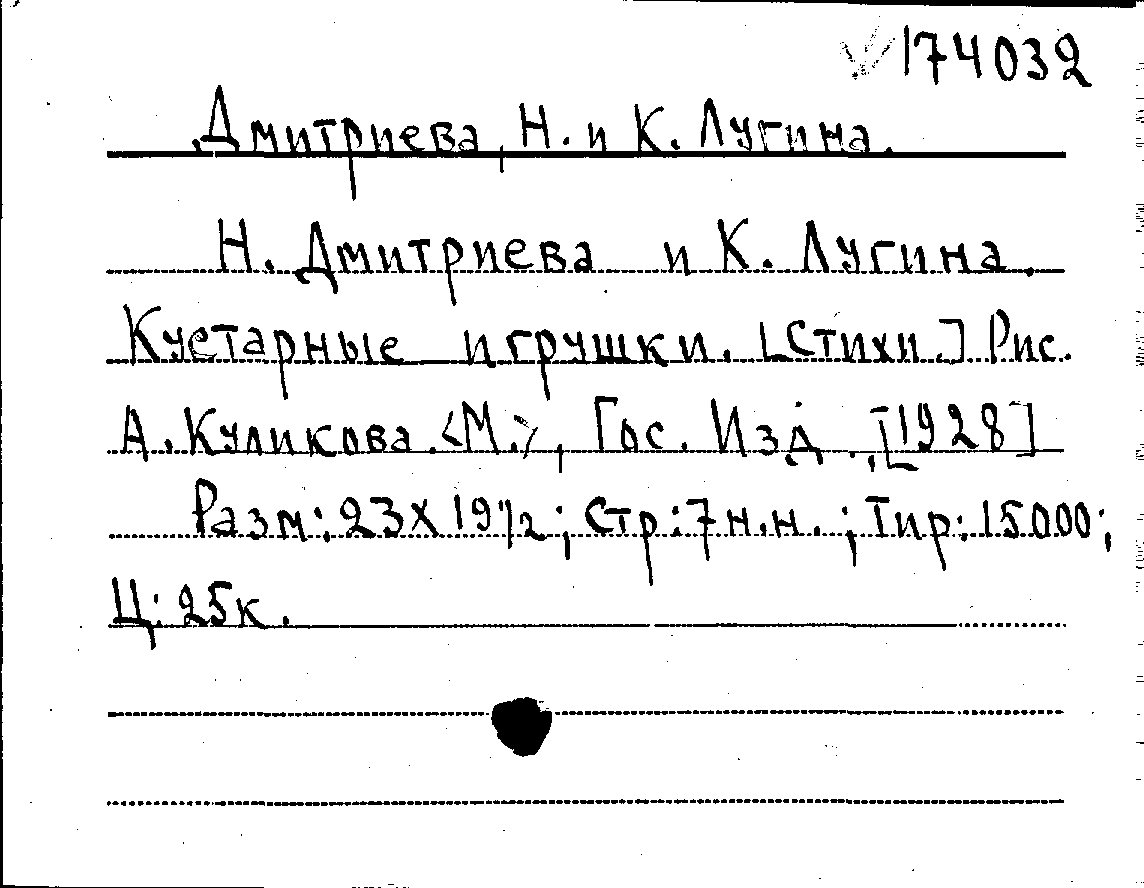 √174032
Дмитриева, Н. и К. Лугина.
Н. Дмитриева и К. Лугина.
Кустарные игрушки. [Стихи.] Рис.
А. Куликова. <М.>, Гос. Изд., [1928]
Разм: 23х19 1/2; Стр: 7 н.н.; Тир: 15.000;
Ц: 25к.